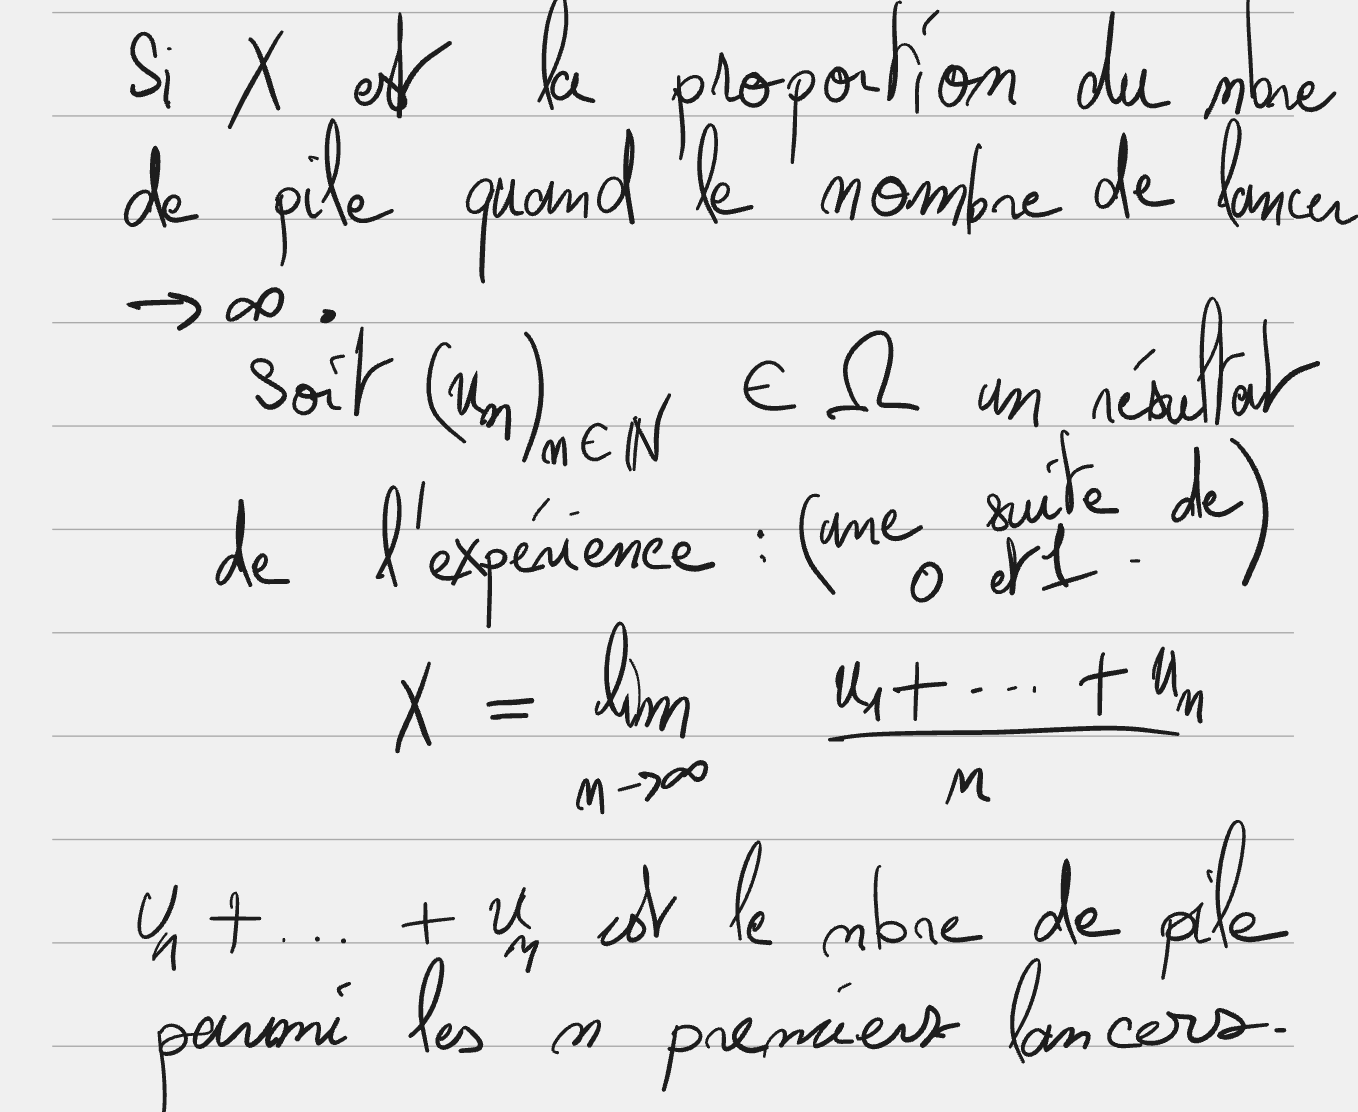 Si X est la proportion du nbre
de pile quand le nombre de lancer
→ ∞.
Soit (u_n)_{n∈ℕ} ∈ Ω un résultat
de l'expérience : (une suite de 0 et 1.)
X = lim_{n→∞} (u_1 + ... + u_n) / n
u_1 + ... + u_n est le nbre de pile
parmi les n premiers lancers.